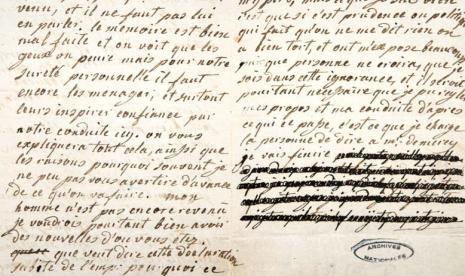 venu, et il ne faut pas lui
en parler. le memoire est bien
mal faite et on voit que les
geux on peure mais pour notre
sureté personnelle il faut
encore les menager, et surtout
leurs inspirer confiance par
notre conduite icy. on vous
expliquera tout cela, ainsi que
les raisons pourquoi souvent je
ne peu pas vous avertire d'avance
de ce qu'on va faire. mon
homme n'est pas encore revenu
je voudrois pourtant bien avoir
des nouvelles d'ou vous etes.
que veut dire cette declaration
subite de l'emp: pourquoi ce
que si c'est prudence ou politique
qui fait qu'on ne me dit rien on
a bien tort, et ont m'expose beaucoup
que personne ne croira, que je
sois dans cette ignorance, et il seroit
pourtant nécessaire que je puisse
mes propos et ma conduite d'après
ce qui ce passe, c'est ce que je charge
la personne de dire a Mr. de mercy
je vais finire
ARCHIVES
NATIONALES